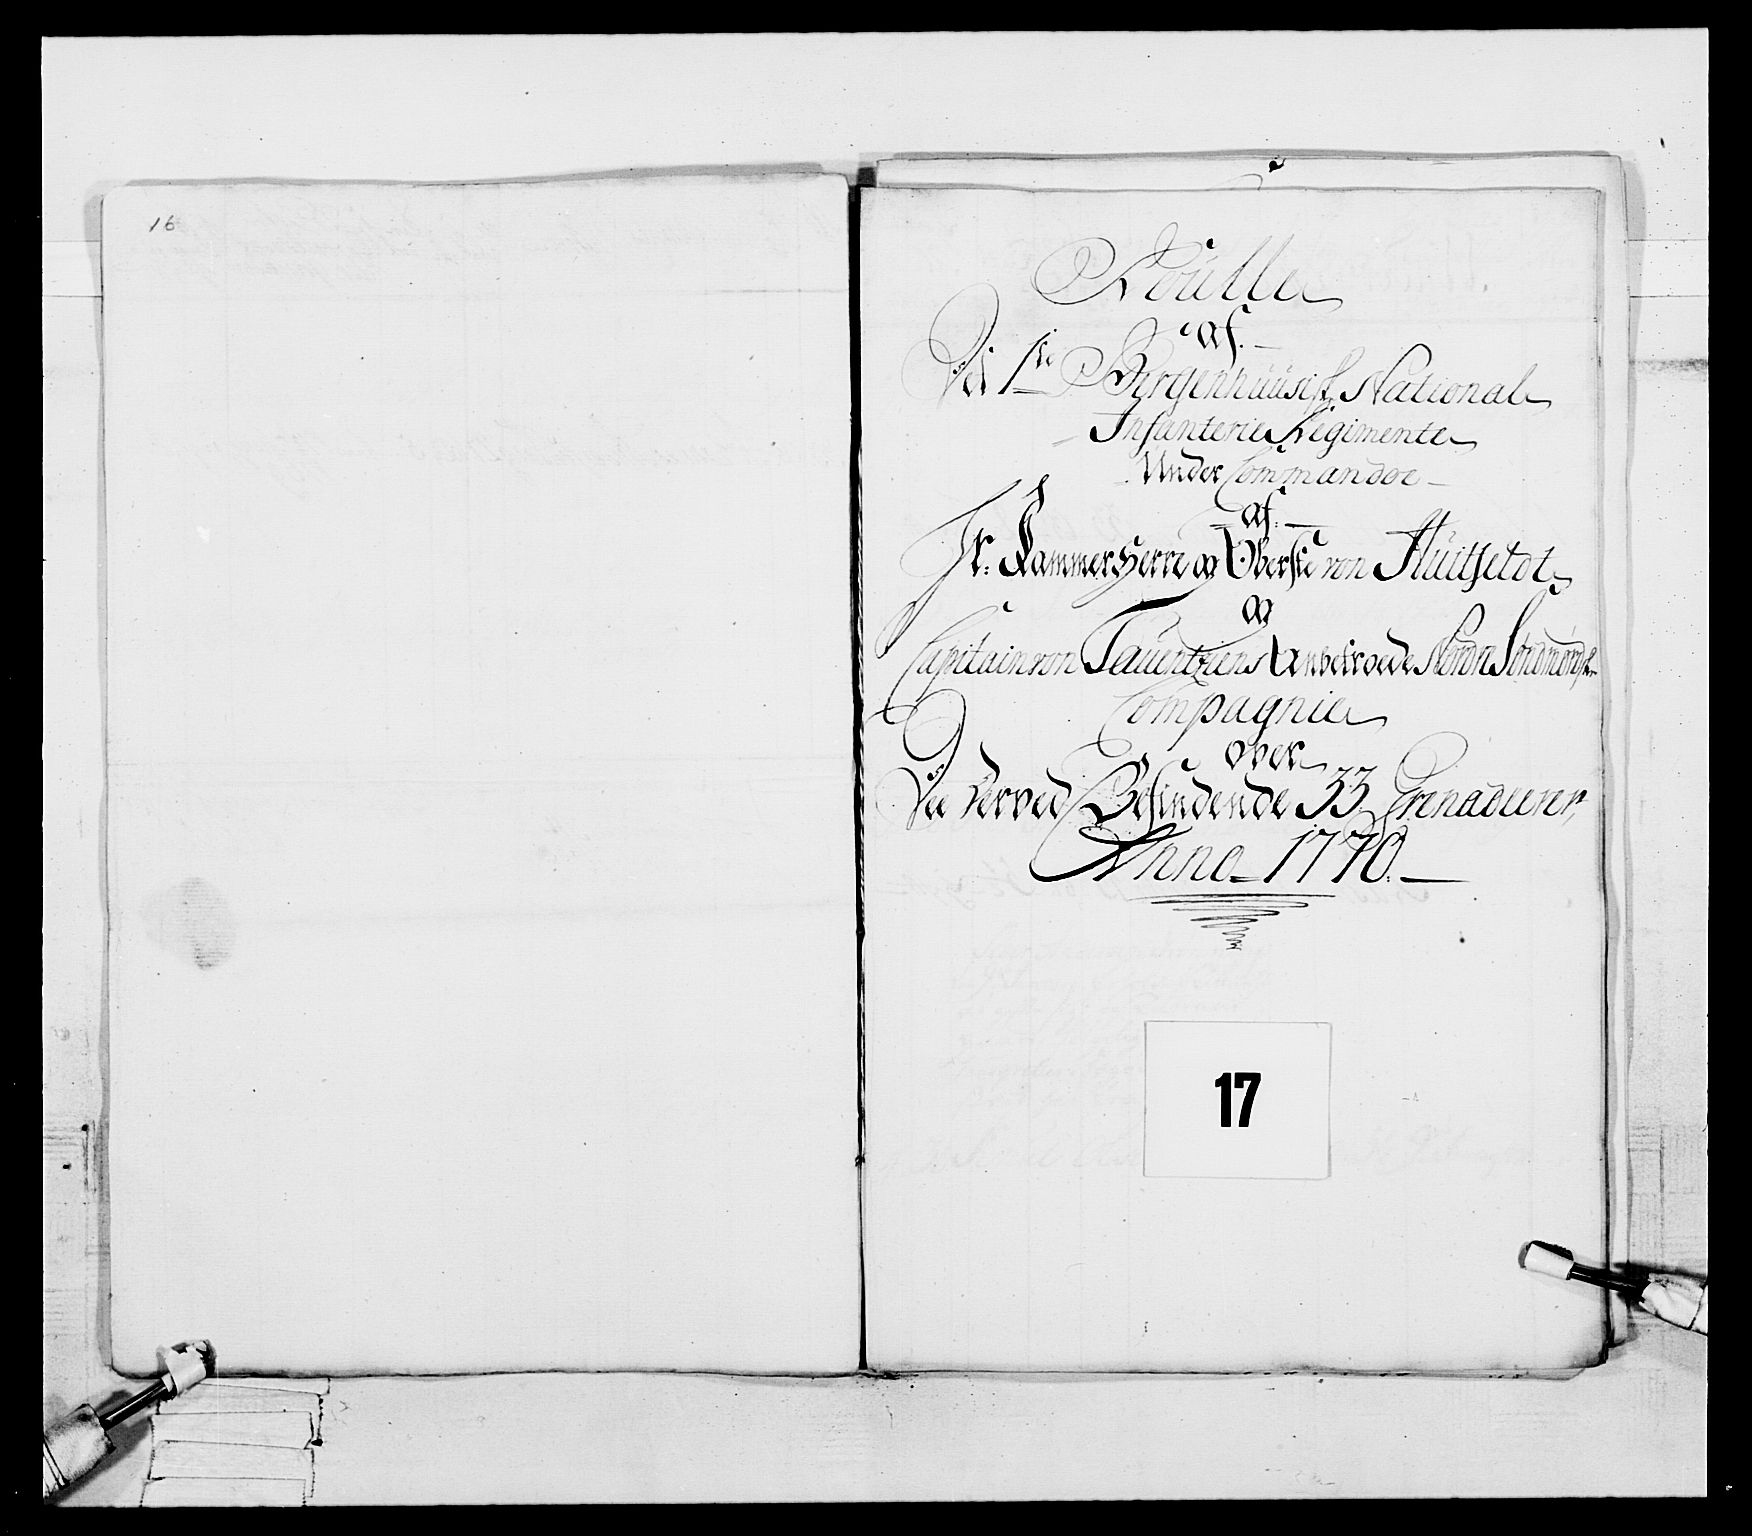 16
Roulle
af.
Det 1te Bergenhuusisk National
Infanterie Regimente
Under Commandoe
af.
Hr. Kammerherre og Oberste von Huitfeldt
og
Capitain von Tauentziens Anbetroede Nordre Søndmørske
Compagnie
over
Die derved Befindende 33 Grenaderer,
Anno 1770.
17